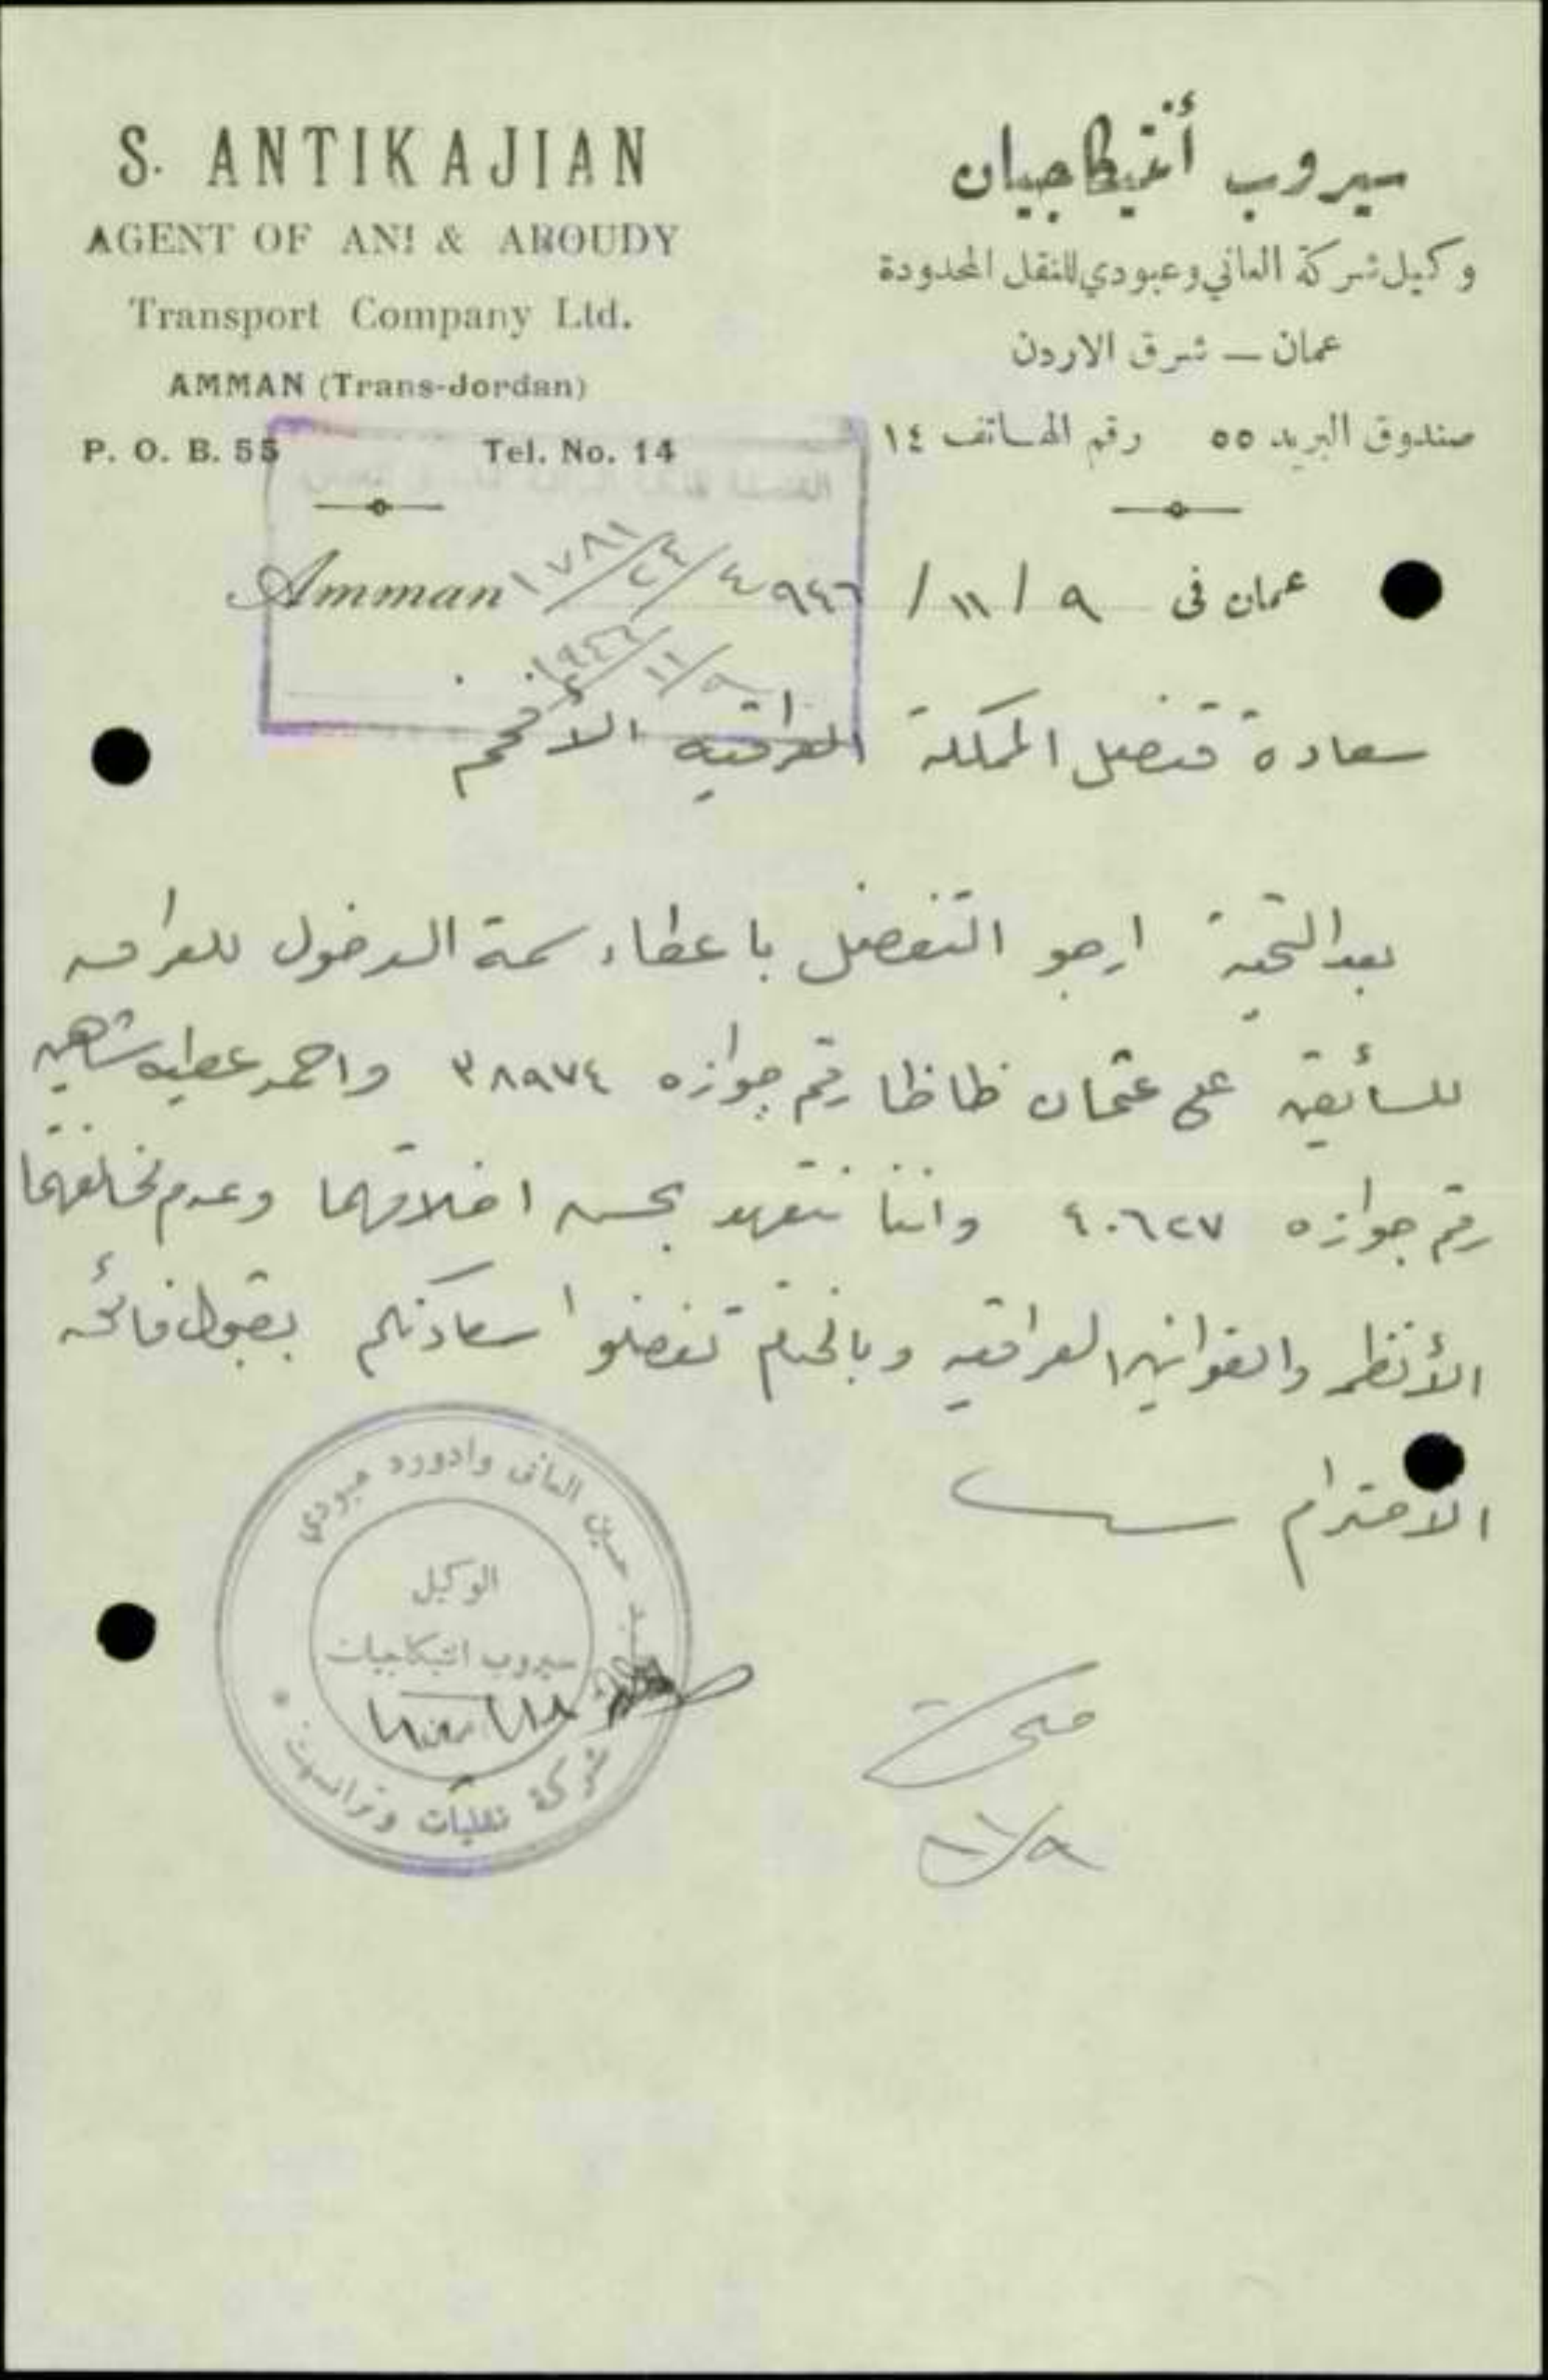 S. ANTIKAJIAN
AGENT OF ANI & ABOUDY
Transport Company Ltd.
AMMAN (Trans-Jordan)
P. O. B. 55 Tel. No. 14
سيروب أنتيكاجيان
وكيل شركة العاني وعبودي للنقل المحدودة
عمان — شرق الاردن
صندوق البريد ٥٥ رقم الهاتف ١٤
Amman
عمان فى ٩ / ١١ / ٩٤٦
١٧٨١/٢٤/٤
١٩٤٦/١١/٩
سعادة قنصل المملكة العراقية الأفخم
بعد التحية ارجو التفضل باعطاء سمة الدخول للعراق
للسائقين علي عثمان ظاظا رقم جوازه ٣٨٩٧٤ واحمد عطيه شاهين
رقم جوازه ٤٠٦٢٧ واننا نتعهد بحسن اخلاقهما وعدم مخالفتهما
الأنظمه والقوانين العراقيه وبالختام تفضلوا سعادتكم بقبول فائق
الاحترام
حسين العاني وادورد عبودي
الوكيل
سيروب انتيكاجيان
شركة نقليات وترانسيت
١١/٩